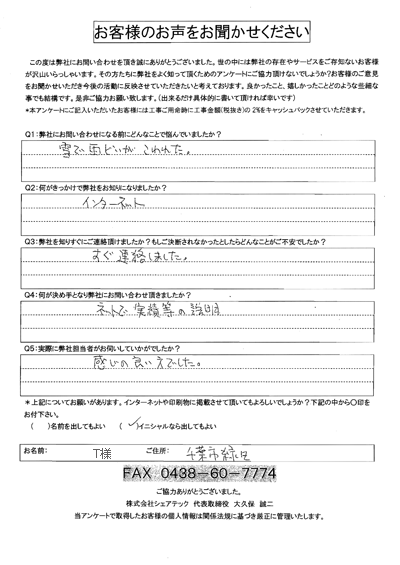 お客様のお声をお聞かせください
この度は弊社にお問い合わせを頂き誠にありがとうございました。世の中には弊社の存在やサービスをご存知ないお客様
が沢山いらっしゃいます。その方たちに弊社をよく知って頂くためのアンケートにご協力頂けないでしょうか？お客様のご意見
をお聞かせいただき今後の活動に反映させていただきたいと考えております。良かったこと、嬉しかったことどのような些細な
事でも結構です。是非ご協力お願い致します。（出来るだけ具体的に書いて頂ければ幸いです）
*本アンケートにご記入いただいたお客様には工事ご用命時に工事金額(税抜き)の2%をキャッシュバックさせていただきます。
Q1:弊社にお問い合わせになる前にどんなことで悩んでいましたか？
雪で雨どいがこわれた。
Q2:何がきっかけで弊社をお知りになりましたか？
インターネット
Q3:弊社を知りすぐにご連絡頂けましたか？もしご決断されなかったとしたらどんなことがご不安でしたか？
すぐ連絡しました。
Q4:何が決め手となり弊社にお問い合わせ頂きましたか？
ネットで実績等の説明
Q5:実際に弊社担当者がお伺いしていかがでしたか？
感じの良い人でした。
*上記についてお願いがあります。インターネットや印刷物に掲載させて頂いてもよろしいでしょうか？下記の中から○印を
お付下さい。
（ ）名前を出してもよい （✓）イニシャルなら出してもよい
お名前： T様 ご住所： 千葉市緑区
FAX 0438-60-7774
ご協力ありがとうございました。
株式会社シェアテック 代表取締役 大久保 誠二
当アンケートで取得したお客様の個人情報は関係法規に基づき厳正に管理いたします。